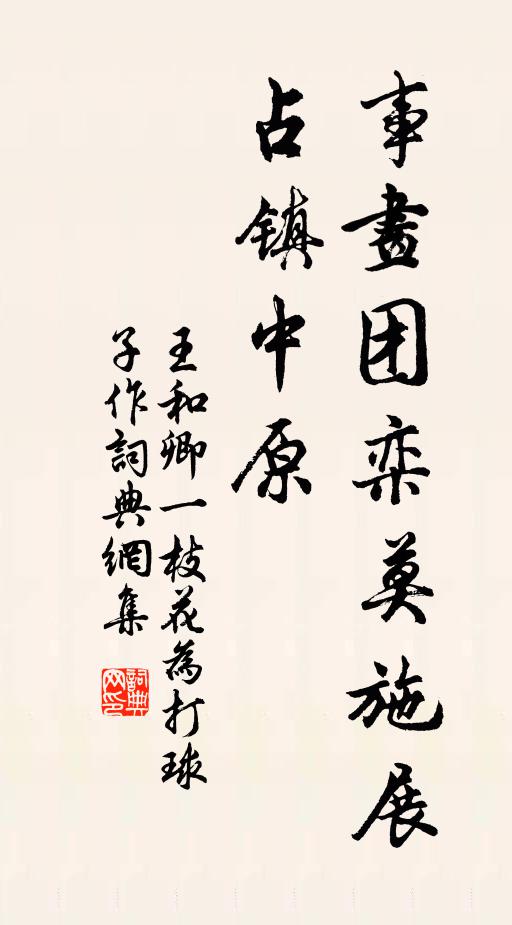 事畫团栾莫施展
占镇中原
王和卿一枝花為打球
子作詞典網集
詞典
网印